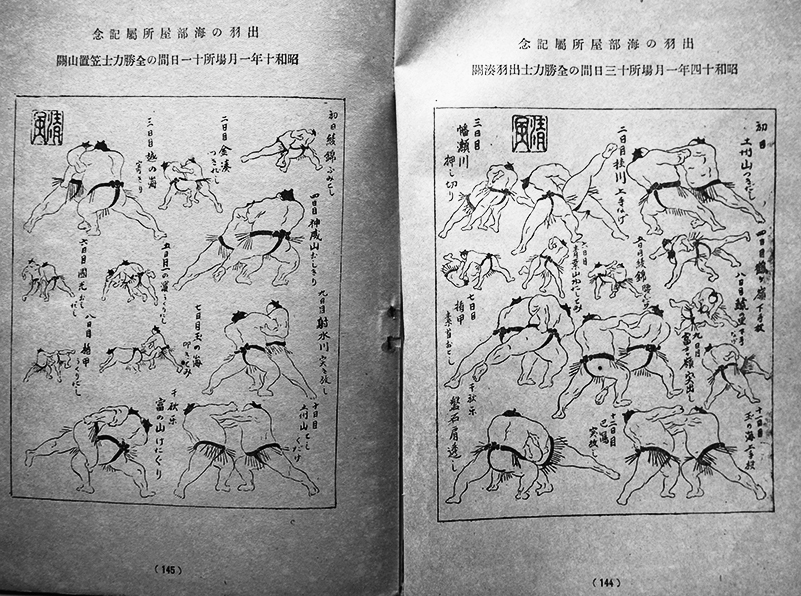 出羽の海部屋所屬記念
昭和十四年一月場所十三日間の全勝力士出羽湊關
初日
上州山つきだし
二日目
桂川
上手投げ
三日目
幡瀬川
押し切り
清風
四日目
五日目
綾錦
六日目
七日目
柏甲
素首おとし
八日目
九日目
富士嶽
突出し
十一日目
玉の海上手投
十二日目
巴潟
突放し
千秋楽
盤石肩透し
(144)
出羽の海部屋所屬記念
昭和十年一月場所十一日間の全勝力士笠置山關
初日
綾錦
ふみだし
二日目
金湊
つきだし
三日目
越の海
寄きり
清風
四日目
神威山
おしきり
五日目
六日目
國光
おしだし
七日目
玉の海
叩きこみ
八日目
柏甲
九日目
射水川
突き放し
十日目
上州山
千秋楽
富の山
けたぐり
(145)